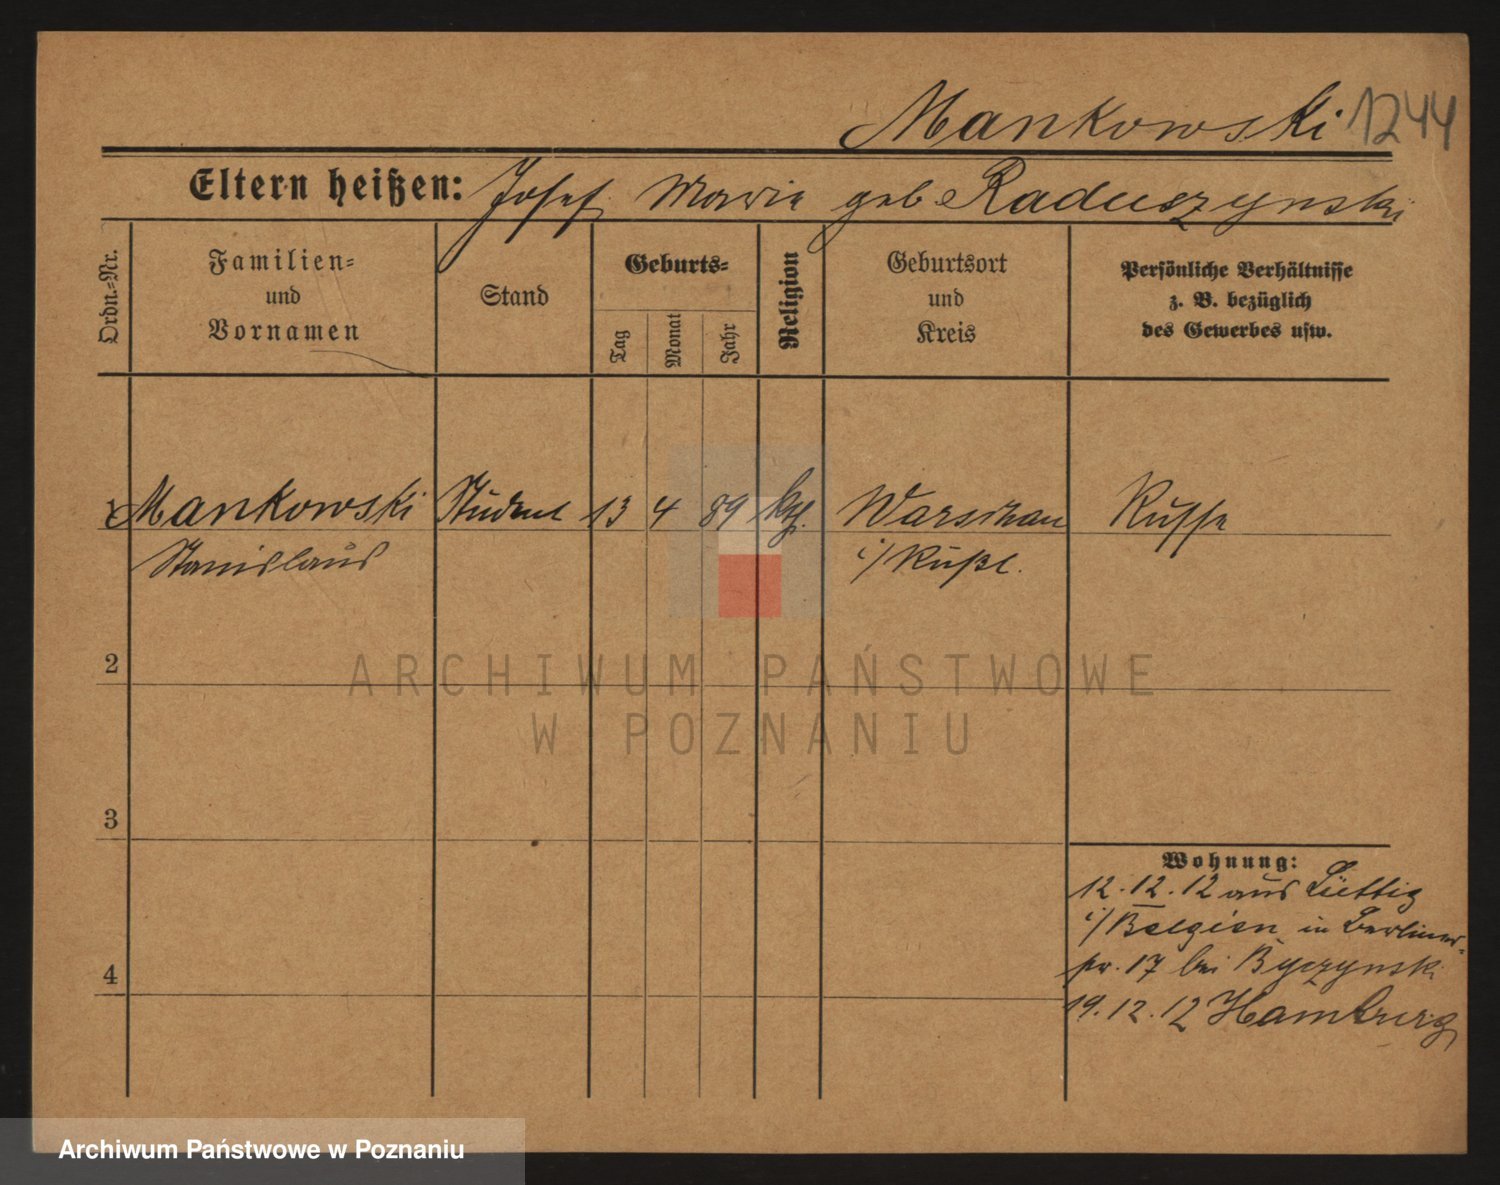 Mankowski 1244
Eltern heißen: Josef Marie geb Raduszynski
Ordn.-Nr.
Familien-
und
Vornamen
Stand
Geburts-
Tag
Monat
Jahr
Religion
Geburtsort
und
Kreis
Persönliche Verhältnisse
z. B. bezüglich
des Gewerbes usw.
1 Mankowski Student 13 4 89 kth. Warschau Russe
Stanislaus i/ Rußl.
2
ARCHIWUM PAŃSTWOWE
W POZNANIU
3
Wohnung:
12.12.12 aus Lüttig
i/ Belgien in Berliner-
str. 17 bei Byczynski
4
19.12.12 Hamburg
Archiwum Państwowe w Poznaniu